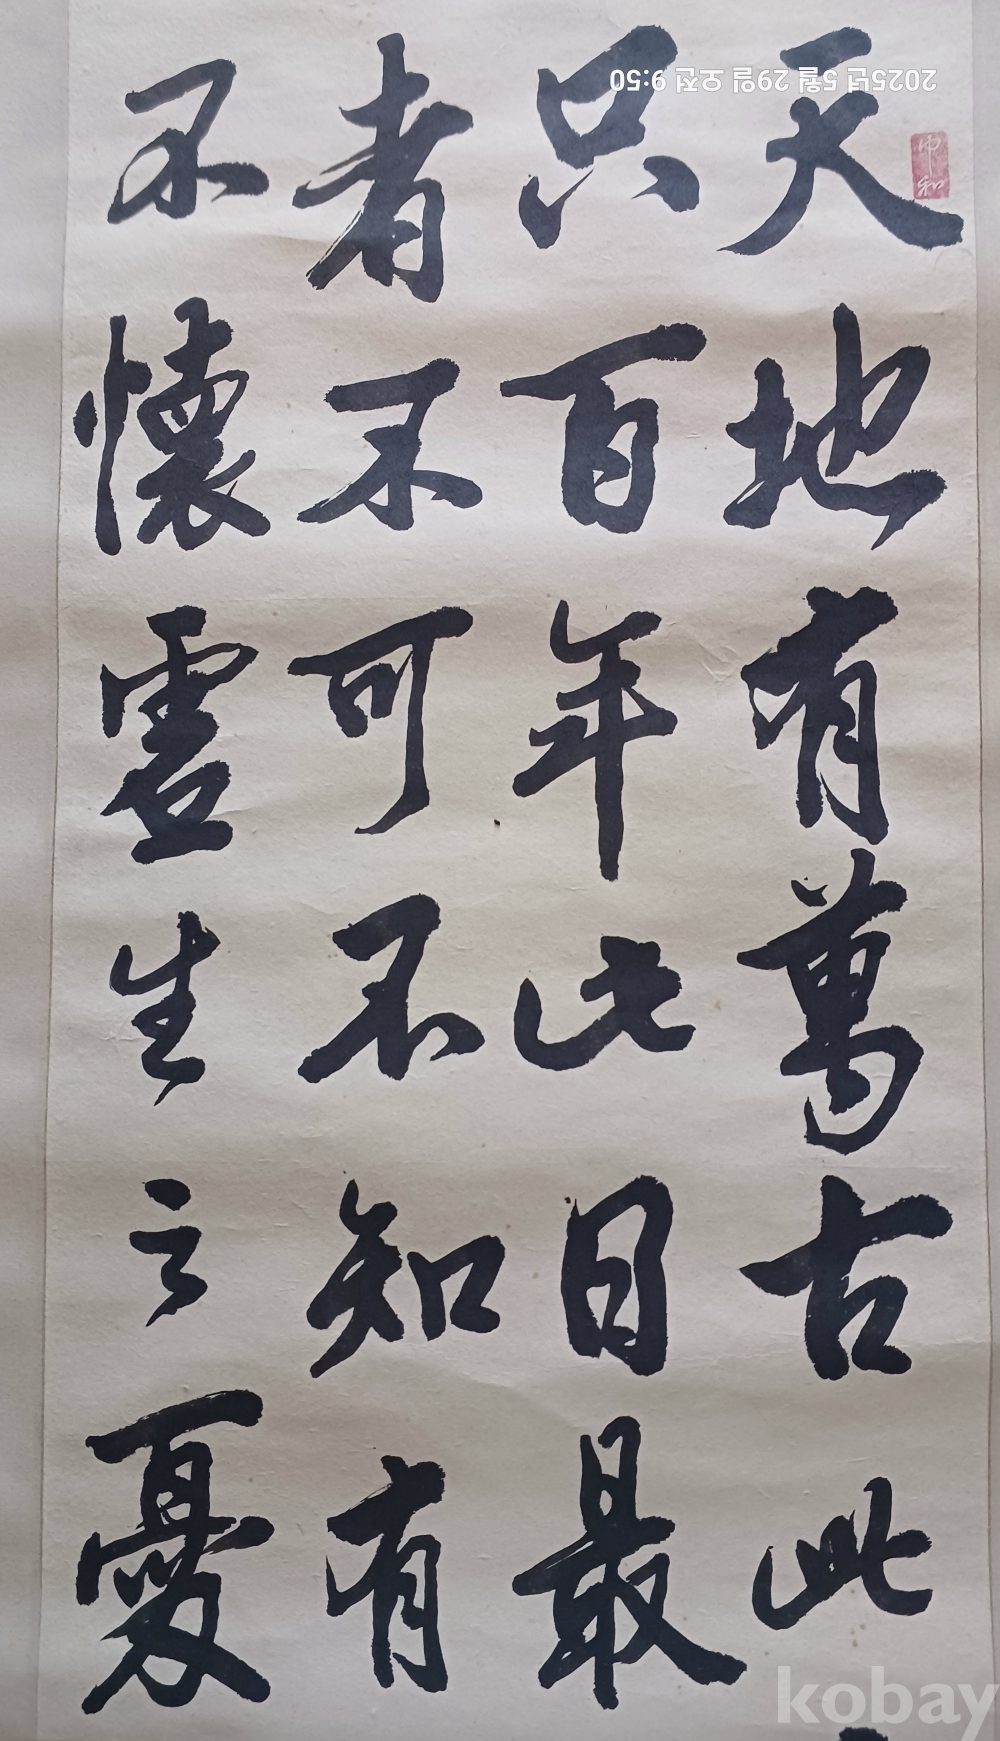 天地有萬古此
只百年此日最
者不可不知有
不懷虛生之憂
中和
2025년 5월 29일 오전 9:50
kobay